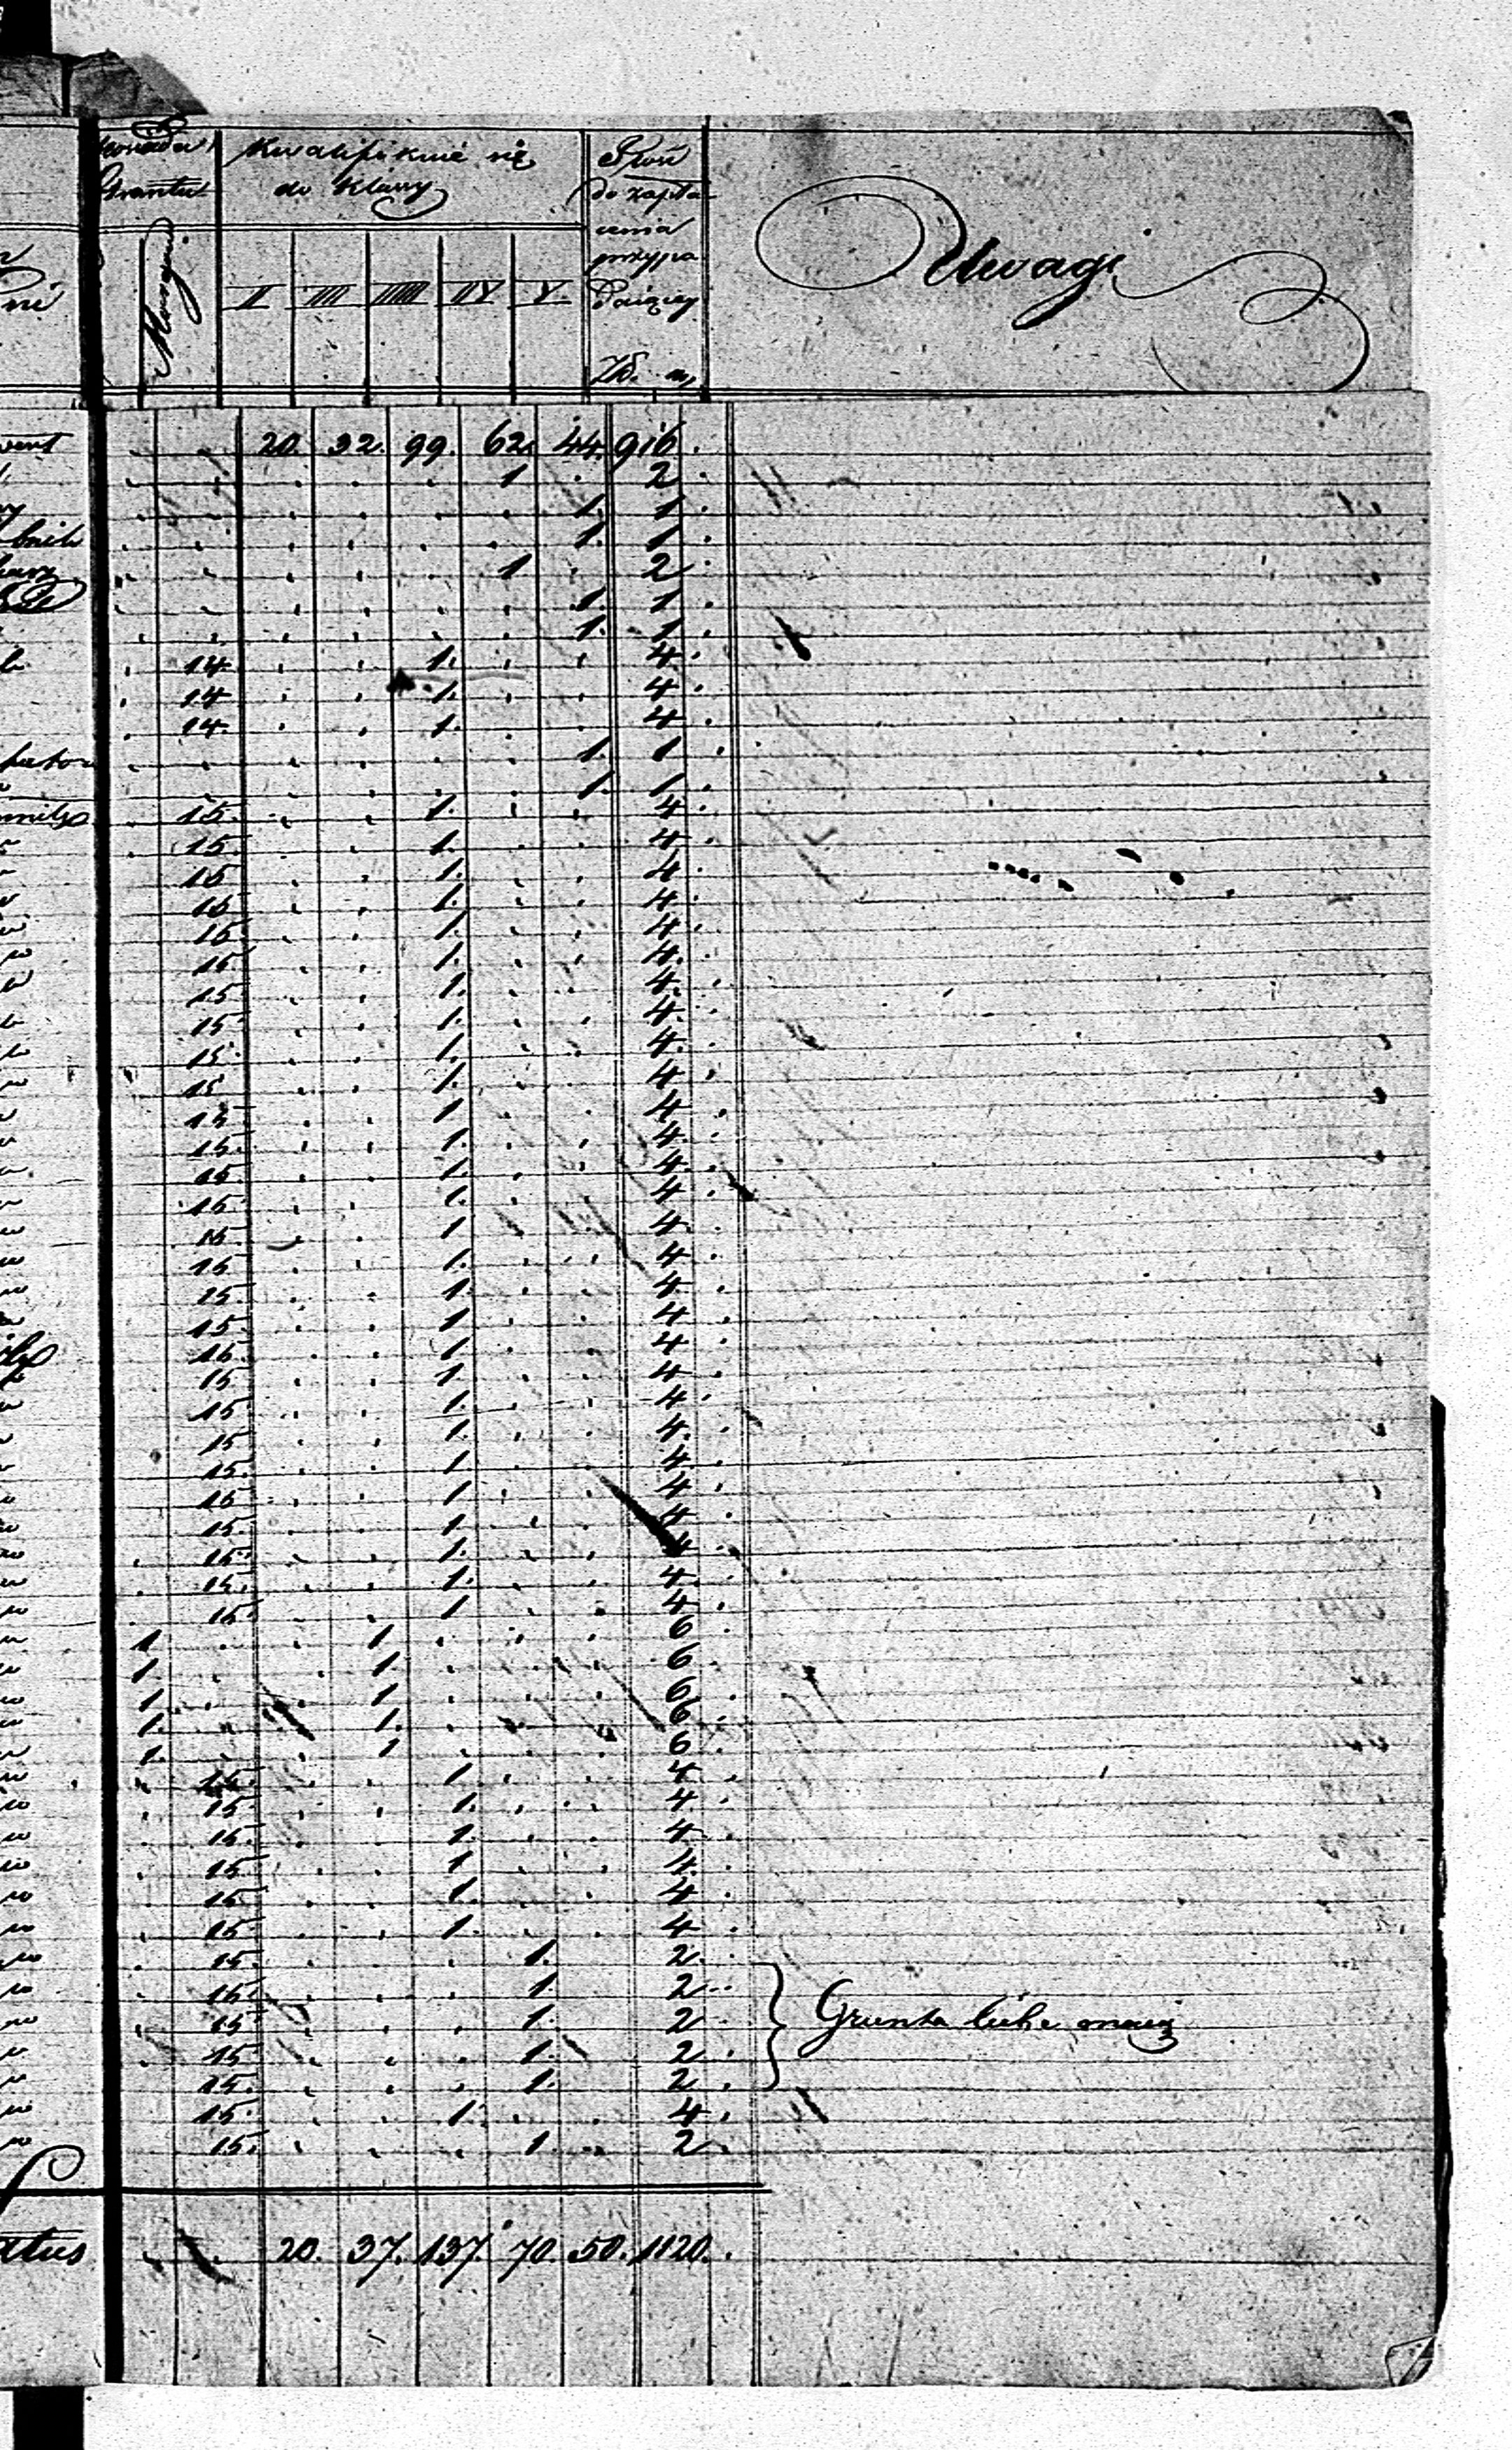 Posiada Gruntu
Kwalifikuie się do Klassy
Ilość do zapłacenia przypadaiącey
Uwagi
Morgi
I II III IV V
Zł. gr
20. 32. 99. 62. 44. 916.
1 2
1. 1
bnik 1. 1
1 2
1. 1
1. 1
14 1. 4
14 1. 4
14. 1. 4
1. 1
1. 1
15. 1. 4
15 1. 4
15 1. 4
15 1. 4
15 1. 4
15 1. 4
15 1. 4
15 1. 4
15 1. 4
15 1. 4
15 1 4
15. 1. 4
15 1. 4
15 1. 4
15. 1 4
15 1. 4
15 1. 4
15 1 4
15. 1 4
15 1 4
15 1. 4
15 1. 4
15. 1 4
15 1 4
15. 1 4
15. 1. 4
15. 1. 4
15. 1 4
1 1 6
1. 1. 6
1. 1 6
1. 1. 6
1. 1 6
15. 1 4
15 1. 4
15. 1. 4
15 1 4
15 1. 4
15 1. 4
15. 1. 2
15. 1 2
15 1. 2 Grunta liche maią
15 1. 2
15. 1. 2
15. 1. 4
15. 1. 2
20. 37. 137. 70. 50. 1120.